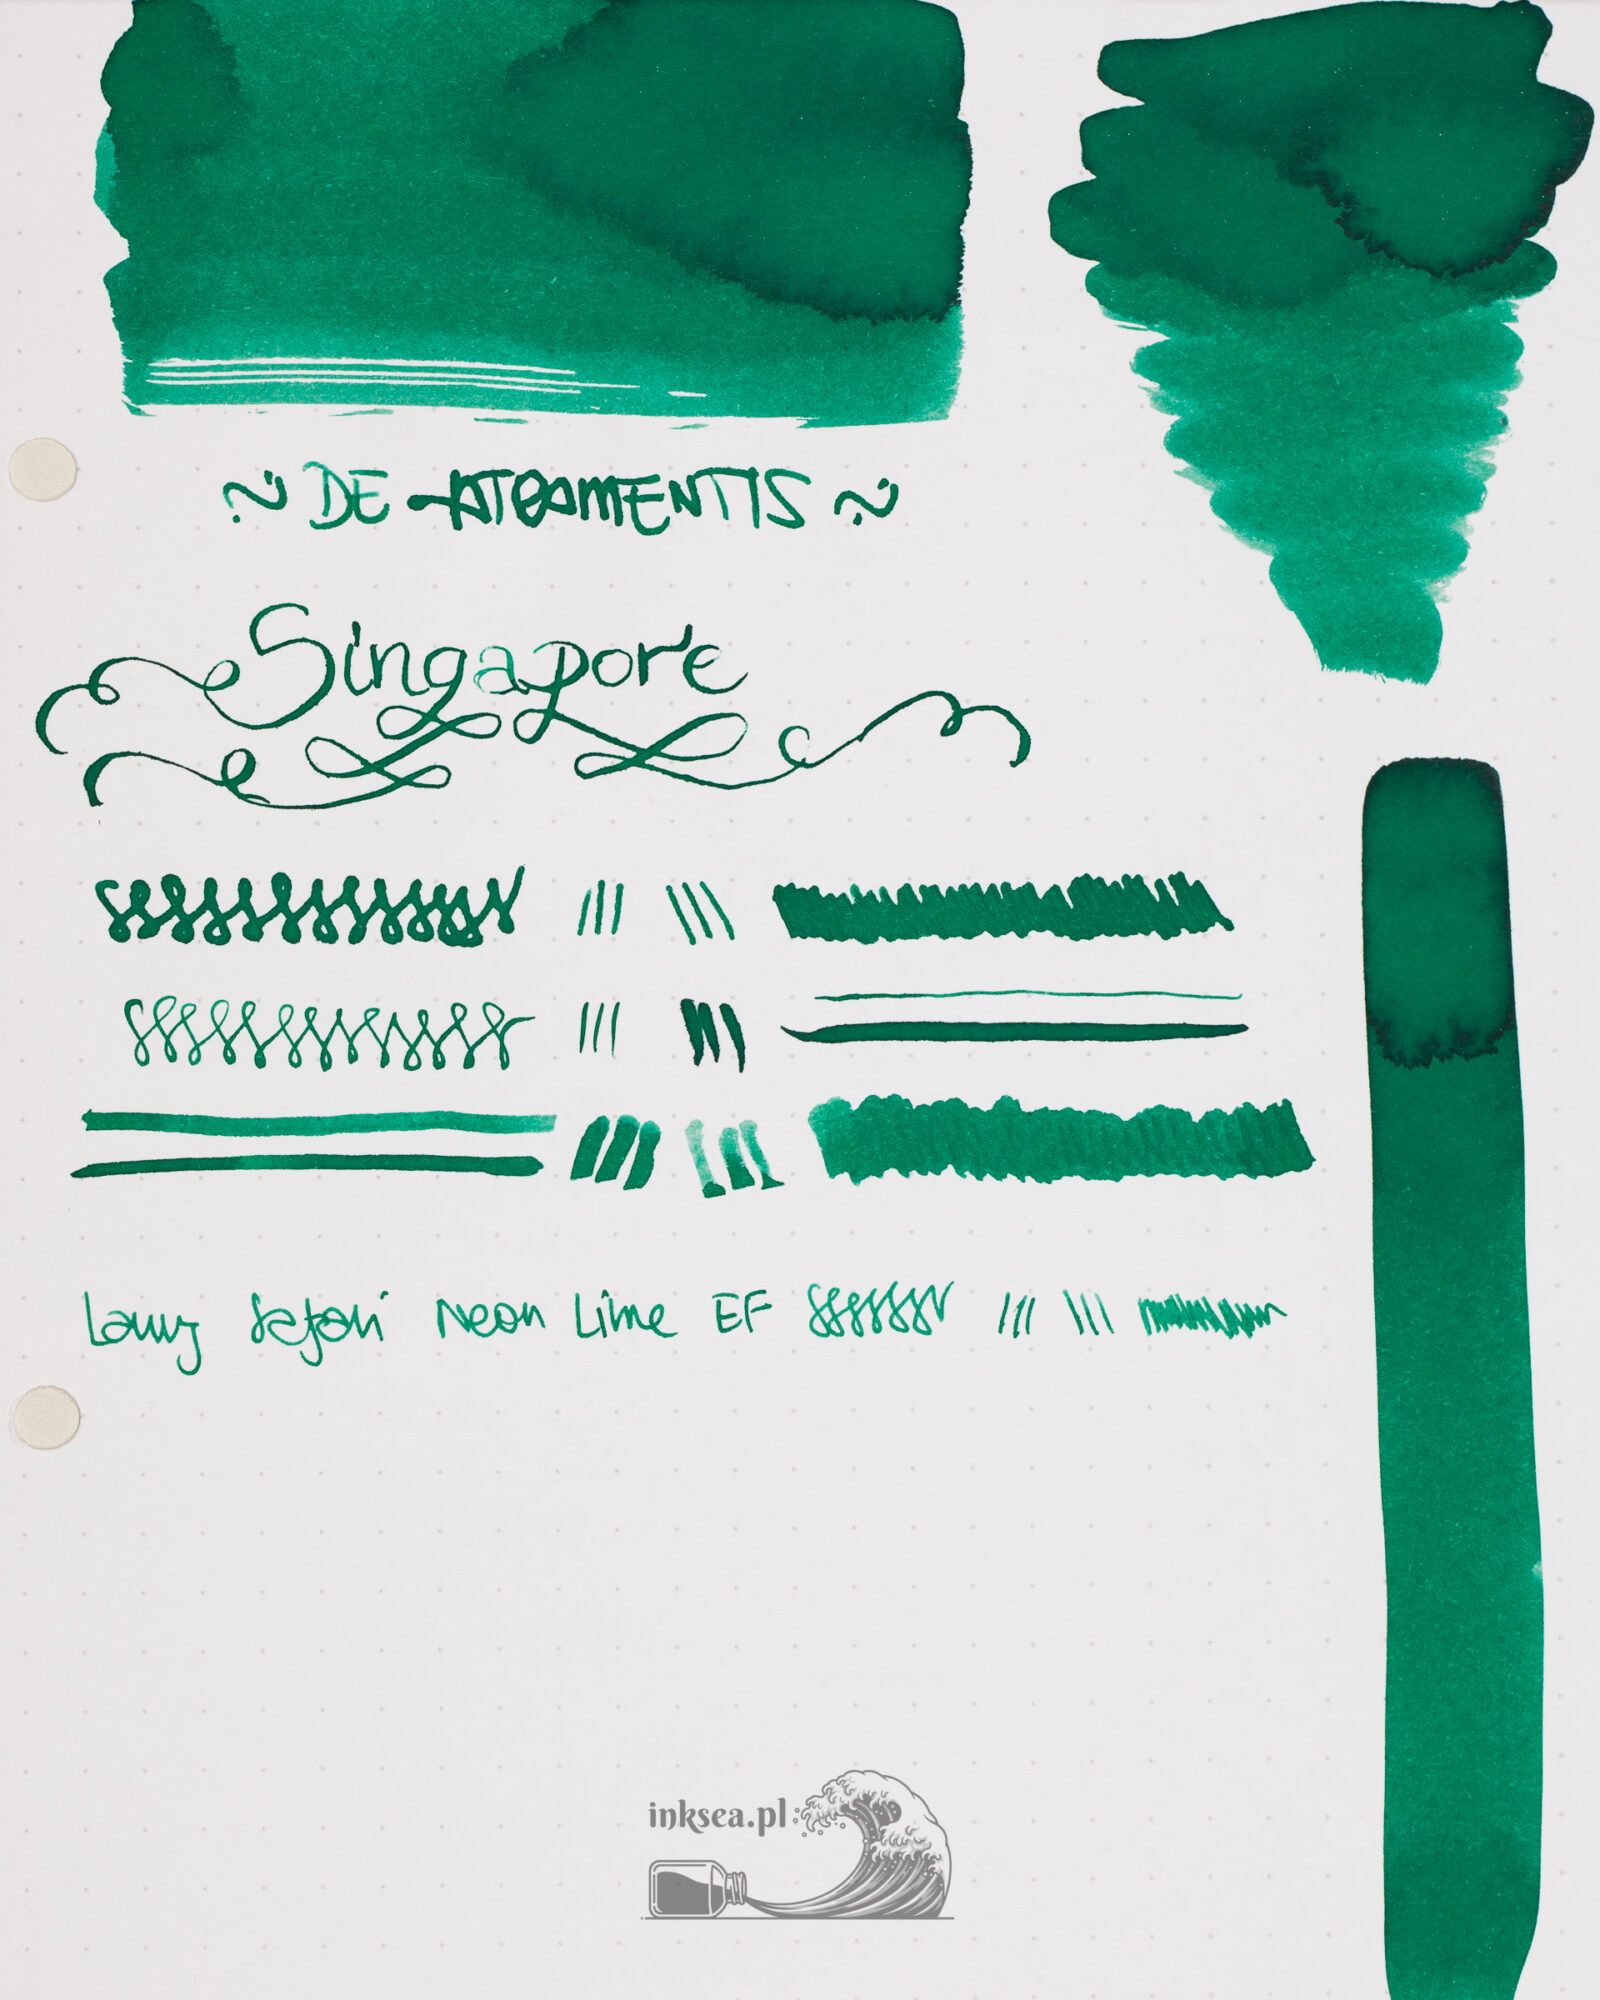 ~ DE ATRAMENTIS ~
Singapore
Lamy Safari Neon Lime EF
inksea.pl